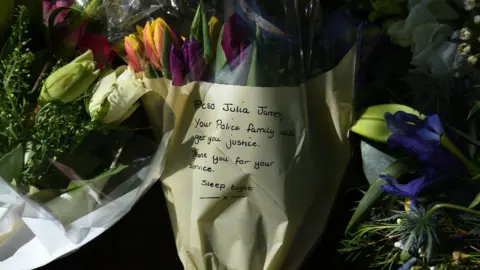 PCSO Julia James,
Your Police family will
get you justice.
Thank you for your
service.
Sleep tight
x